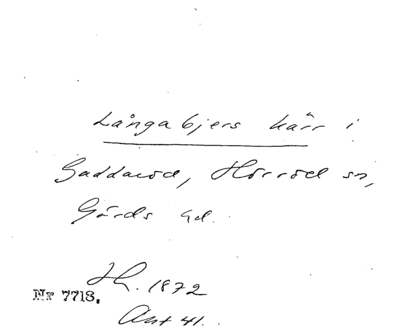 Långabjers kärr i
Gaddaröd, Hörröd sn,
Gärds hd.
H. 1872
Nr 7718.
Ant 41.